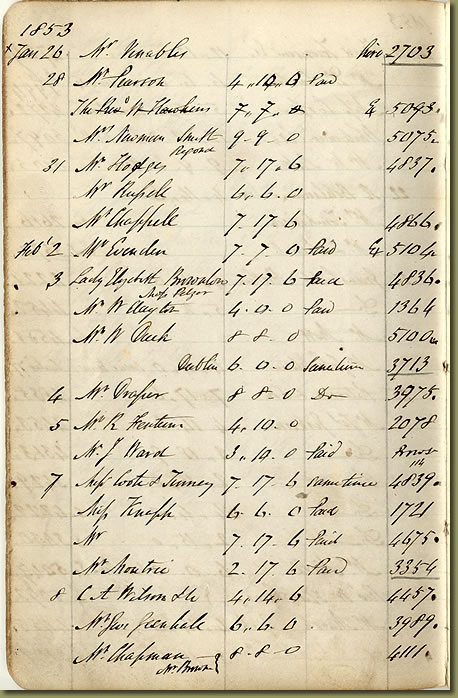 1853
x Jan 26 Mr Venables hire 2703
28 Mr Pearson 4.14.6 Paid
The Revd H Hawkins 7.7.0 E 5093.
Mrs Newman 9-9-0 5075.
31 Mr Hodges 7.17.6 4837.
Mr Russell 6.6.0
Mr Chappell 7.17.6 4866.
Feby 2 Mr Evenden 7.7.0 Paid E 5104.
3 Lady Elizabeth Brownlow 7.17.6 Paid 4836.
Mr W Clayton 4.0.0 Paid 1364
Mr W 8 8-0 5100
Dublin 6.0.0 3713
4 Mr Draper 8 8 0 Do 3975.
5 Mr R 4.10.0 2078
Mr J Ward 3.10.0 Paid
114
7 Miss Coote & Tinney 7.17.6 4839.
Miss Knapp 6.6.0 Paid 1721
Mr 7.17.6 Paid 4675.
Mr Moutrie 2.17.6 Paid 3354
8 C A Wilson & Co 4.14.6 4457.
Mr Jas Greenhale 6.6.0 3989.
Mr Chapman 8-8-0 4111.
Mr Brown